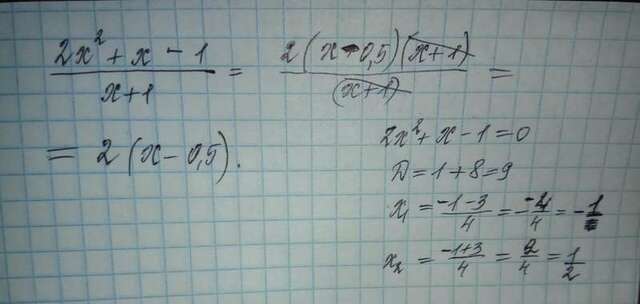 (2x² + x − 1)/(x+1) = 2(x−0,5)(x+1)/(x+1) =
= 2(x − 0,5).
2x² + x − 1 = 0
D = 1 + 8 = 9
x₁ = (−1−3)/4 = −4/4 = −1
x₂ = (−1+3)/4 = 2/4 = 1/2